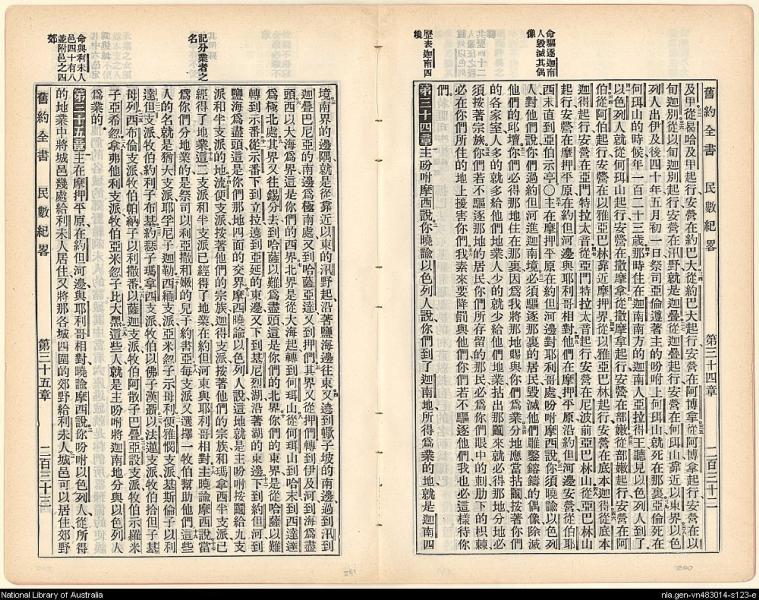 舊約全書　民數紀畧　第三十四章　二百三十二
命驅逐迦南
人毀滅其偶
像
堅表迦南四
境
及甲從易哈及甲起行安營在約巴大從約巴大起行安營在阿博拿從阿博拿起行安營在以
旬迦別從以旬迦別起行安營在汛野就是迦疊從迦疊起行安營在何珥山靠近以東界以色
列人出伊及後四十年五月初一日祭司亞倫遵著主的吩咐上何珥山就死在那裏亞倫死在
何珥山的時候年一百二十三歲那時住在迦南南方的迦南人亞拉得王聽見以色列人到了
以色列人就從何珥山起行安營在撒摩拿從撒摩拿起行安營在部嫩從部嫩起行安營在阿
伯從阿伯起行安營在以雅亞巴林靠近摩押界從以雅亞巴林起行安營在底本迦得從底本
迦得起行安營在亞門特拉太音從亞門特拉太音起行安營在尼波前亞巴林山從亞巴林山
起行安營在摩押平原在約但河邊與耶利哥相對他們在摩押平原沿約但河邊安營從伯耶
西末直到亞伯示亭○主在摩押平原在約但河邊對耶利哥處吩咐摩西說你須曉諭以色列
人對他們說你們過約但河進迦南境必須驅逐那裏的居民毀滅他們雕鏨鎔鑄的偶像除滅
他們的邱壇你們必得那地住在那裏因我將那地賜與你們爲業分地應當拈鬮按著你們
的各家室人多的就多給他們地業人少的就少給他們地業拈出那鬮來就必得那地分地必
須按著宗族你們若不驅逐那地的居民你們所存留的那民必爲你們眼中的刺肋下的枳棘
必在你們所住的地上擾害你們我素來要降罰與他們你們若不驅逐他們我也必這樣待你
們
第三十四章 主吩咐摩西說你曉諭以色列人說你們到了迦南地所得爲業的地就是迦南四
記分業者之
名
命與利未人
邑四十有八
並附邑之四
郊
境南界的邊隅就是從靠近以東的汛野起沿著鹽海邊往東又遶到蠍子坡的南邊過到汛
迦疊巴尼亞的南邊爲極南處又到哈薩亞達又到押們其界又從押們轉到伊及河到海爲盡
頭西以大海爲界這是你們的西界北界是從大海起轉到何珥山從何珥山到哈末到西達達
爲極北處其界又往錫分去到哈薩以難爲盡頭這是你們的北界你們的東界是從哈薩以難
轉到示番從示番下到立拉遶到亞延的東邊又下到基尼烈湖沿著湖的東邊下到約但河到
鹽海爲盡頭這是你們那地四面的交界摩西曉諭以色列人說這地就是主吩咐按鬮給九支
派和半支派的地流便支派按著他們的宗族迦得支派按著他們的宗族和瑪拿西半支派已
經得了地業這二支派和半支派已經得了地業在約但河東與耶利哥相對主曉諭摩西說當
爲你們分地業的是祭司以利亞撒和嫩的兒子約書亞每支派又選擇一牧伯幫助他們這些
人的名就是猶大支派耶孚尼子迦勒西緬支派亞米忽子示母利便雅憫支派基斯倫子以利
達但支派牧伯約利子布基約瑟子瑪拿西支派牧伯以弗子漢聶以法蓮支派牧伯拾但子基
母列西布倫支派牧伯帕納子以利撒番以薩迦支派牧伯阿散子巴疊亞設支派牧伯示羅米
子亞希忽拿弗他利支派牧伯亞米忽子比大黑這些人就是主吩咐將迦南地分與以色列人
爲業的
第三十五章 主在摩押平原在約但河邊與耶利哥相對曉諭摩西說你吩咐以色列人從所得
的地業中將城邑幾處給利未人居住又將那各城四圍的郊野給利未人城邑可以居住郊野
舊約全書　民數紀畧　第三十五章　二百三十三
National Library of Australia
nla.gen-vn483014-s123-e